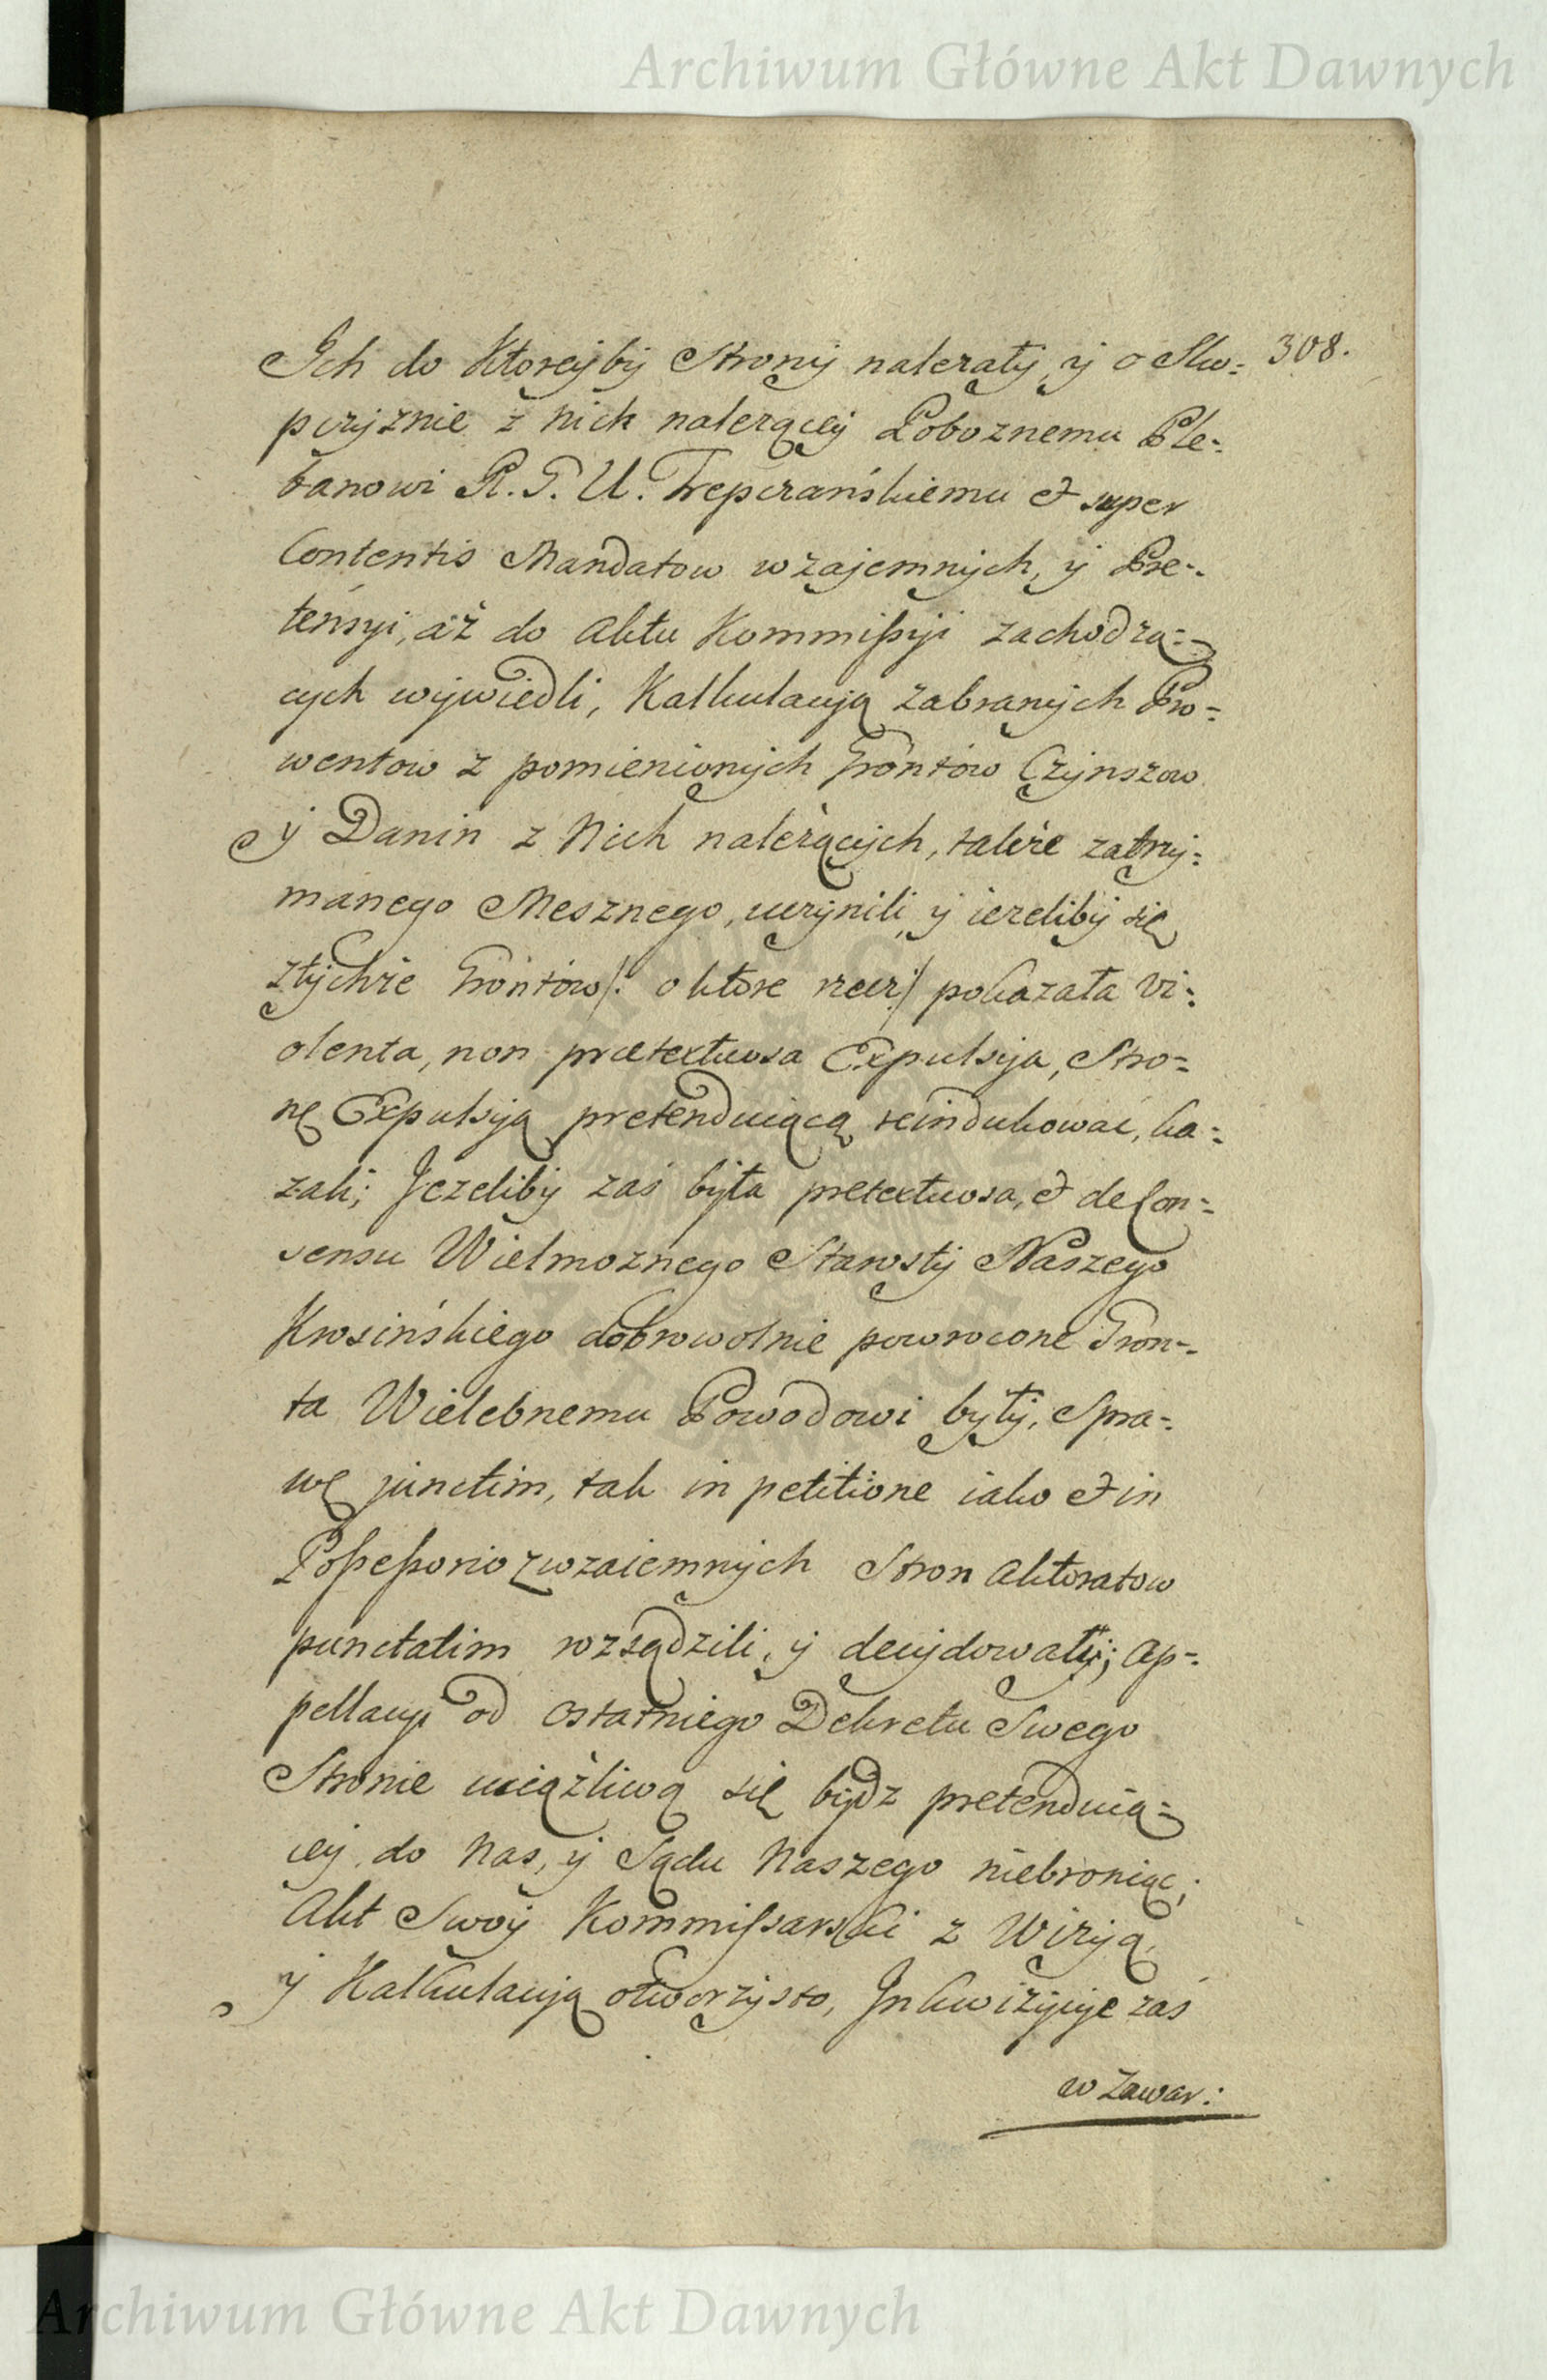 Archiwum Główne Akt Dawnych
308.
Ich do Ktoreyby Strony należały, y o Sku=
pczyznie z nich należącey Pobożnemu Ple=
banowi R. G. U. Trepczańskiemu et super
Contentis Mandatow wzajemnych, y Pre=
tensyi, aż do Aktu Kommissyi zachodzą=
cych wywiedli, Kalkulacyą zabranych Pro=
wentow z pomienionych Grontow Czynszow
y Danin z Nich należących, także zatrzy=
manego Mesznego, uczynili, y ieżeliby się
ztychże Grontów /: o ktore rzecz /: pokazała vi=
olenta, non prætextuosa Expulsya, Stro=
nę Expulsyą pretenduiącą reindukować, ka=
zali; Jeżeliby zaś była pretextuosa, et de Con=
sensu Wielmożnego Starosty Naszego
Krosińskiego dobrowolnie powrocone Gron=
ta Wielebnemu Powodowi były, Spra=
wę junctim, tak in petitione iako et in
Possessorio zwzaiemnych Stron Aktoratow
punctatim rozsądzili, y decydowali; Ap=
pellacyi od ostatniego Dekretu Swego
Stronie uciążliwą się bydz pretenduią=
cey, do Nas, y Sądu Naszego niebroniąc;
Akt Swoy Kommissarski z Wizyą,
y Kalkulacyą otworzysto, Inkwizycye zaś
w zawar:
Archiwum Główne Akt Dawnych